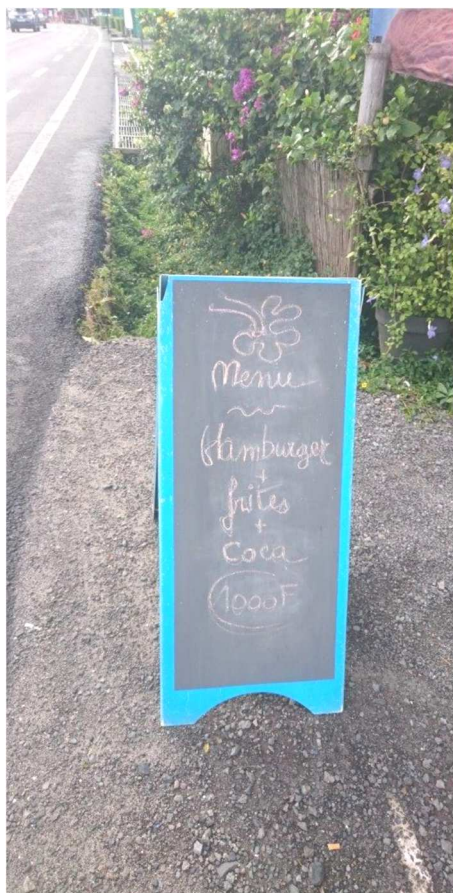 Menu
Hamburger
+
frites
+
Coca
1000F